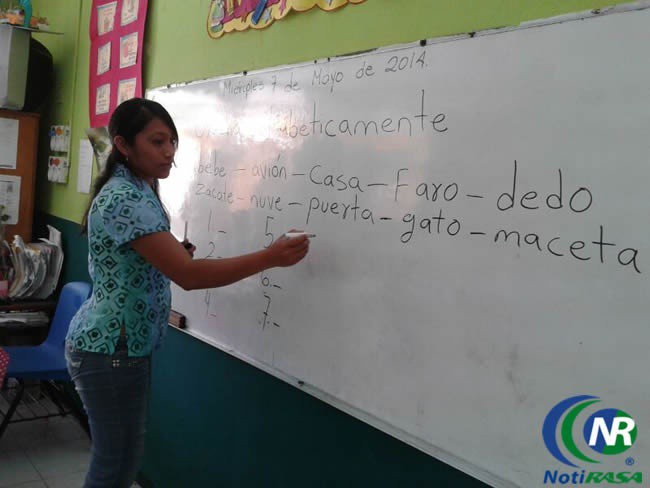 Miércoles 7 de Mayo de 2014.
alfabéticamente
bebe - avión - Casa - Faro - dedo
zacate - nuve - puerta - gato - maceta
1_ 5
2_
6._
4_ 7._
NR
NotiRASA